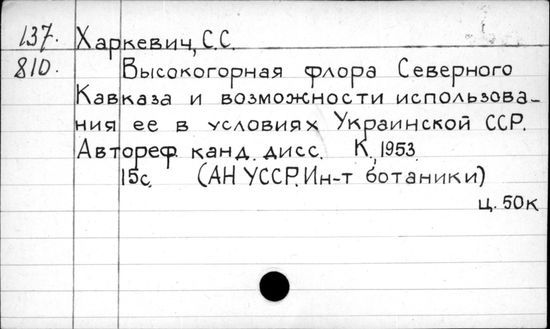 137. Харкевич, С.С.
810. Высокогорная флора Северного
Кавказа и возможности использова-
ния ее в условиях Украинской ССР.
Автореф. канд. дисс. К., 1953.
15с. (АН УССР. Ин-т ботаники)
ц. 50к